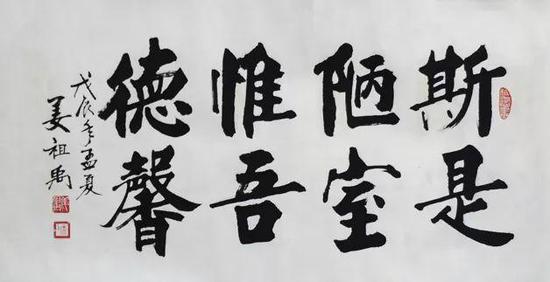 斯是
陋室
惟吾
德馨
戊辰年孟夏
姜祖禹